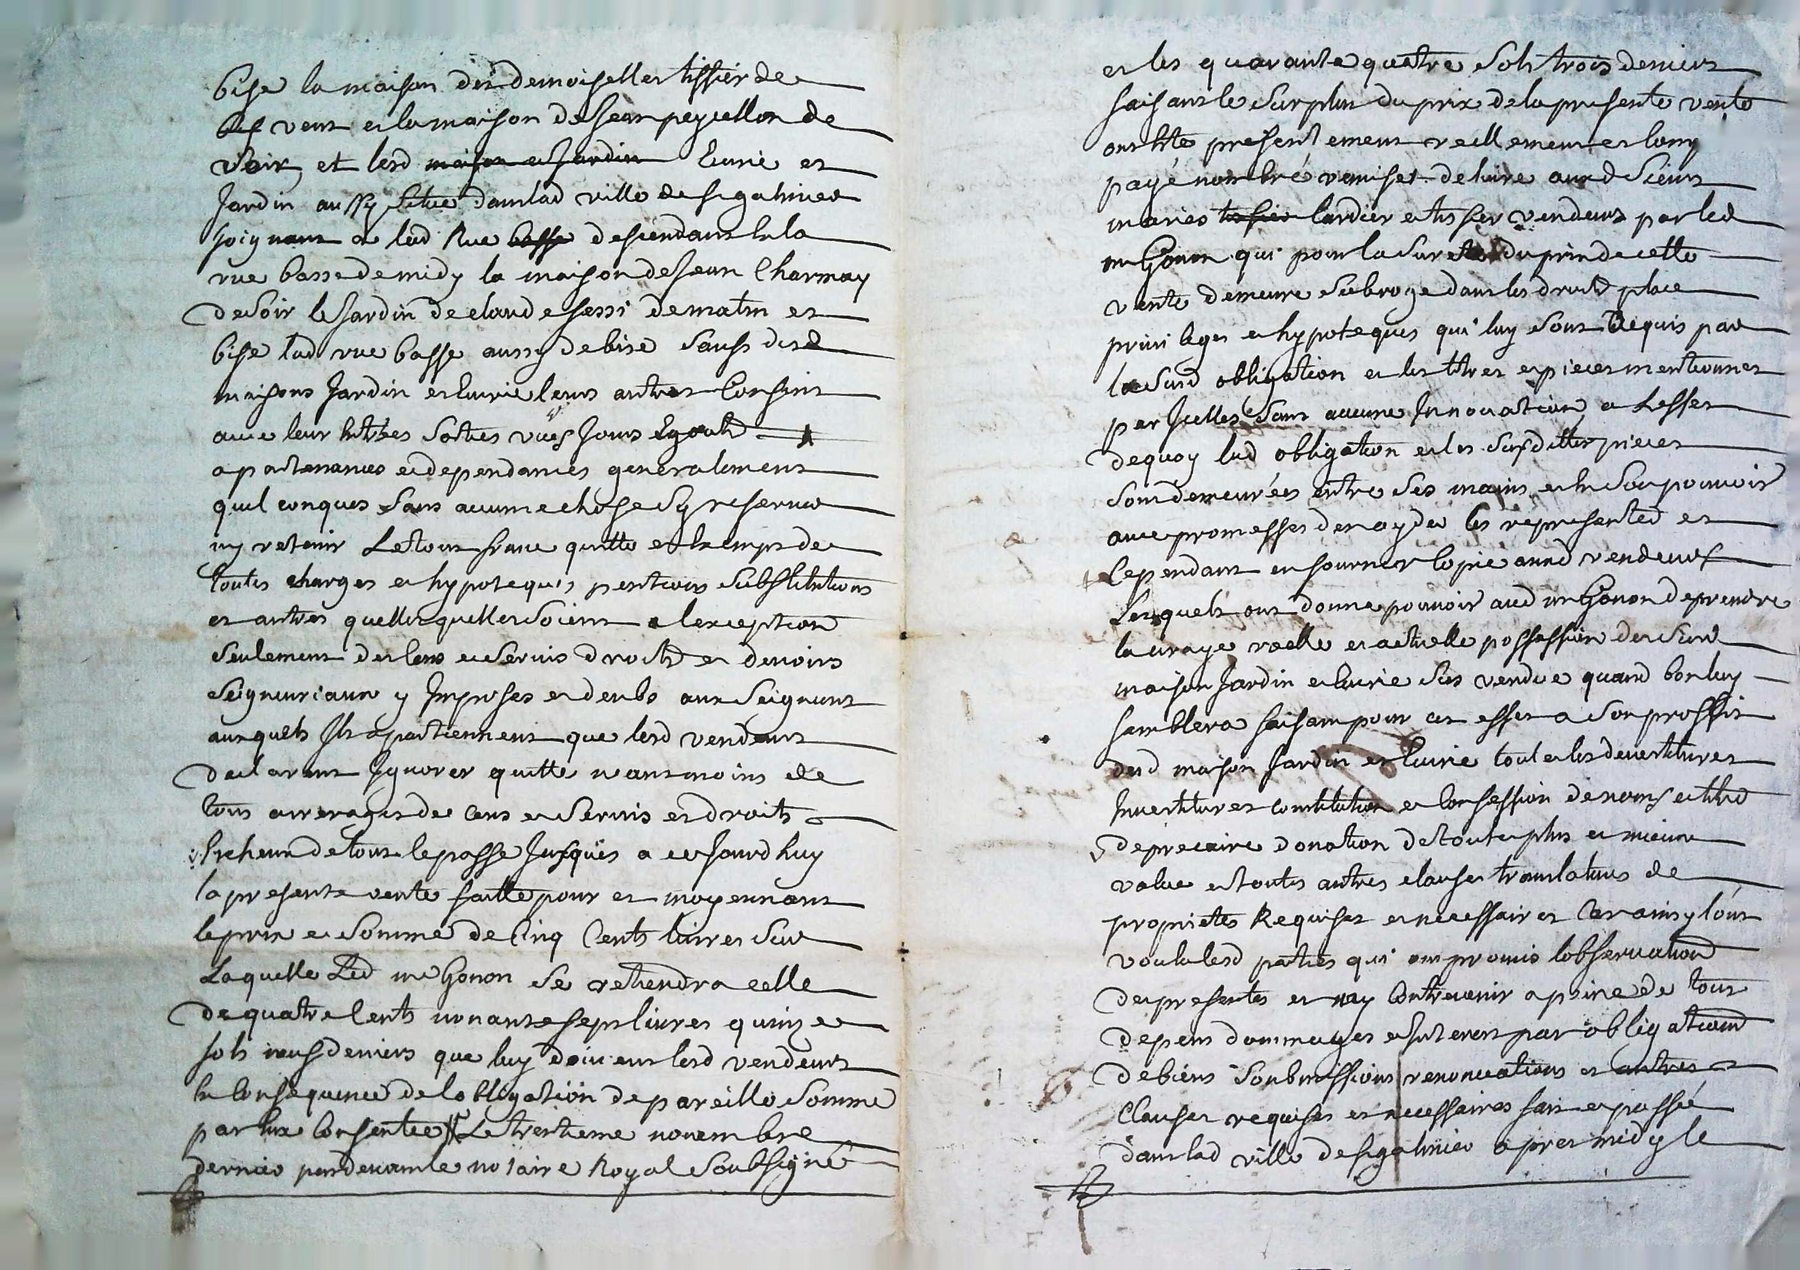 bise la maison des demoiselles tissier de
vent et la maison de Jean peycellon de
soir et lesd maison et Jardin Ecurie et
Jardin aussy situé dans lad ville de st galmier
Joignant a lad Rue basse descendant en la
rue basse de midy la maison de Jean Charmay
de soir le Jardin de claude de matin et
bise lad rue basse aussy de bise sauf desd
maisons Jardin et Ecurie leurs autres Confins
avec leur Entrées sorties vües Jours Egouts
apartenances et dependances generalement
quelconques sans aucune chose sy reserver
ny retenir Le tout franc quitte et Exempt de
toutes charges et hypoteques pentions substitutions
et autres quelles quelles soient a lexception
seulement des Cens et servis droits et devoirs
seigneuriaux y Imposés et deubs aux seigneurs
auxquels Ils apartiennent que lesd vendeurs
declarent Ignorer quitte neantmoins de
tous arrerages de Cens et servis et droits
Echeus de tout le passé Jusques a ce Jourdhuy
la presente vente faitte pour et moyennant
le prix et somme de Cinq Cents livres sur
Laquelle Led me Gonon se retiendra celle
de quatre Cents nonante sept livres quinze
sols neuf deniers que luy doivent lesd vendeurs
En Consequence de lobligation de pareille somme
par Eux Consentie Le trentieme novembre
dernier pardevant le notaire Royal soubsigné
et les quarante quatre sols trois deniers
faisant le surplus du prix de la presente vente
ont été presentement reellement et
payé nombré remises delivré auxd sieurs
mariés tissier lardier et tissier vendeurs par led
me Gonon qui pour la sureté du prix de cette
vente demeure subrogé dans les droits place
privileges et hypoteques qui luy sont acquis par
la susd obligation et les titres et pieces mentionnés
par Icelles sans aucune Innovation a Leffet
de quoy lad obligation et les susdittes pieces
sont demeurées entre ses mains et En son pouvoir
avec promesses den ayder les representer et
Cependant en fournir Copie auxd vendeurs
Lesquels ont donné pouvoir aud me Gonon de prendre
la vraye reelle et actuelle possession des susd
maison Jardin et Ecurie sus vendue quand bon luy
semblera faisant pour cet effet a son proffit
desd maison Jardin et Ecurie toutes les devestitures
Investitures constitution et Confession de nom et titre
de precaire donation de toute plus et mieux
value et toutes autres clauses translatives de
proprietés Requises et necessaires Car ainsy lont
voulu lesd parties qui ont promis lobservation
des presentes et ny Contrevenir a peine de tous
depens dommages et Interets par obligations
de biens soubmissions renonciations et autres
Clauses requises et necessaires fait et passé
dans lad ville de st galmier apres midy le